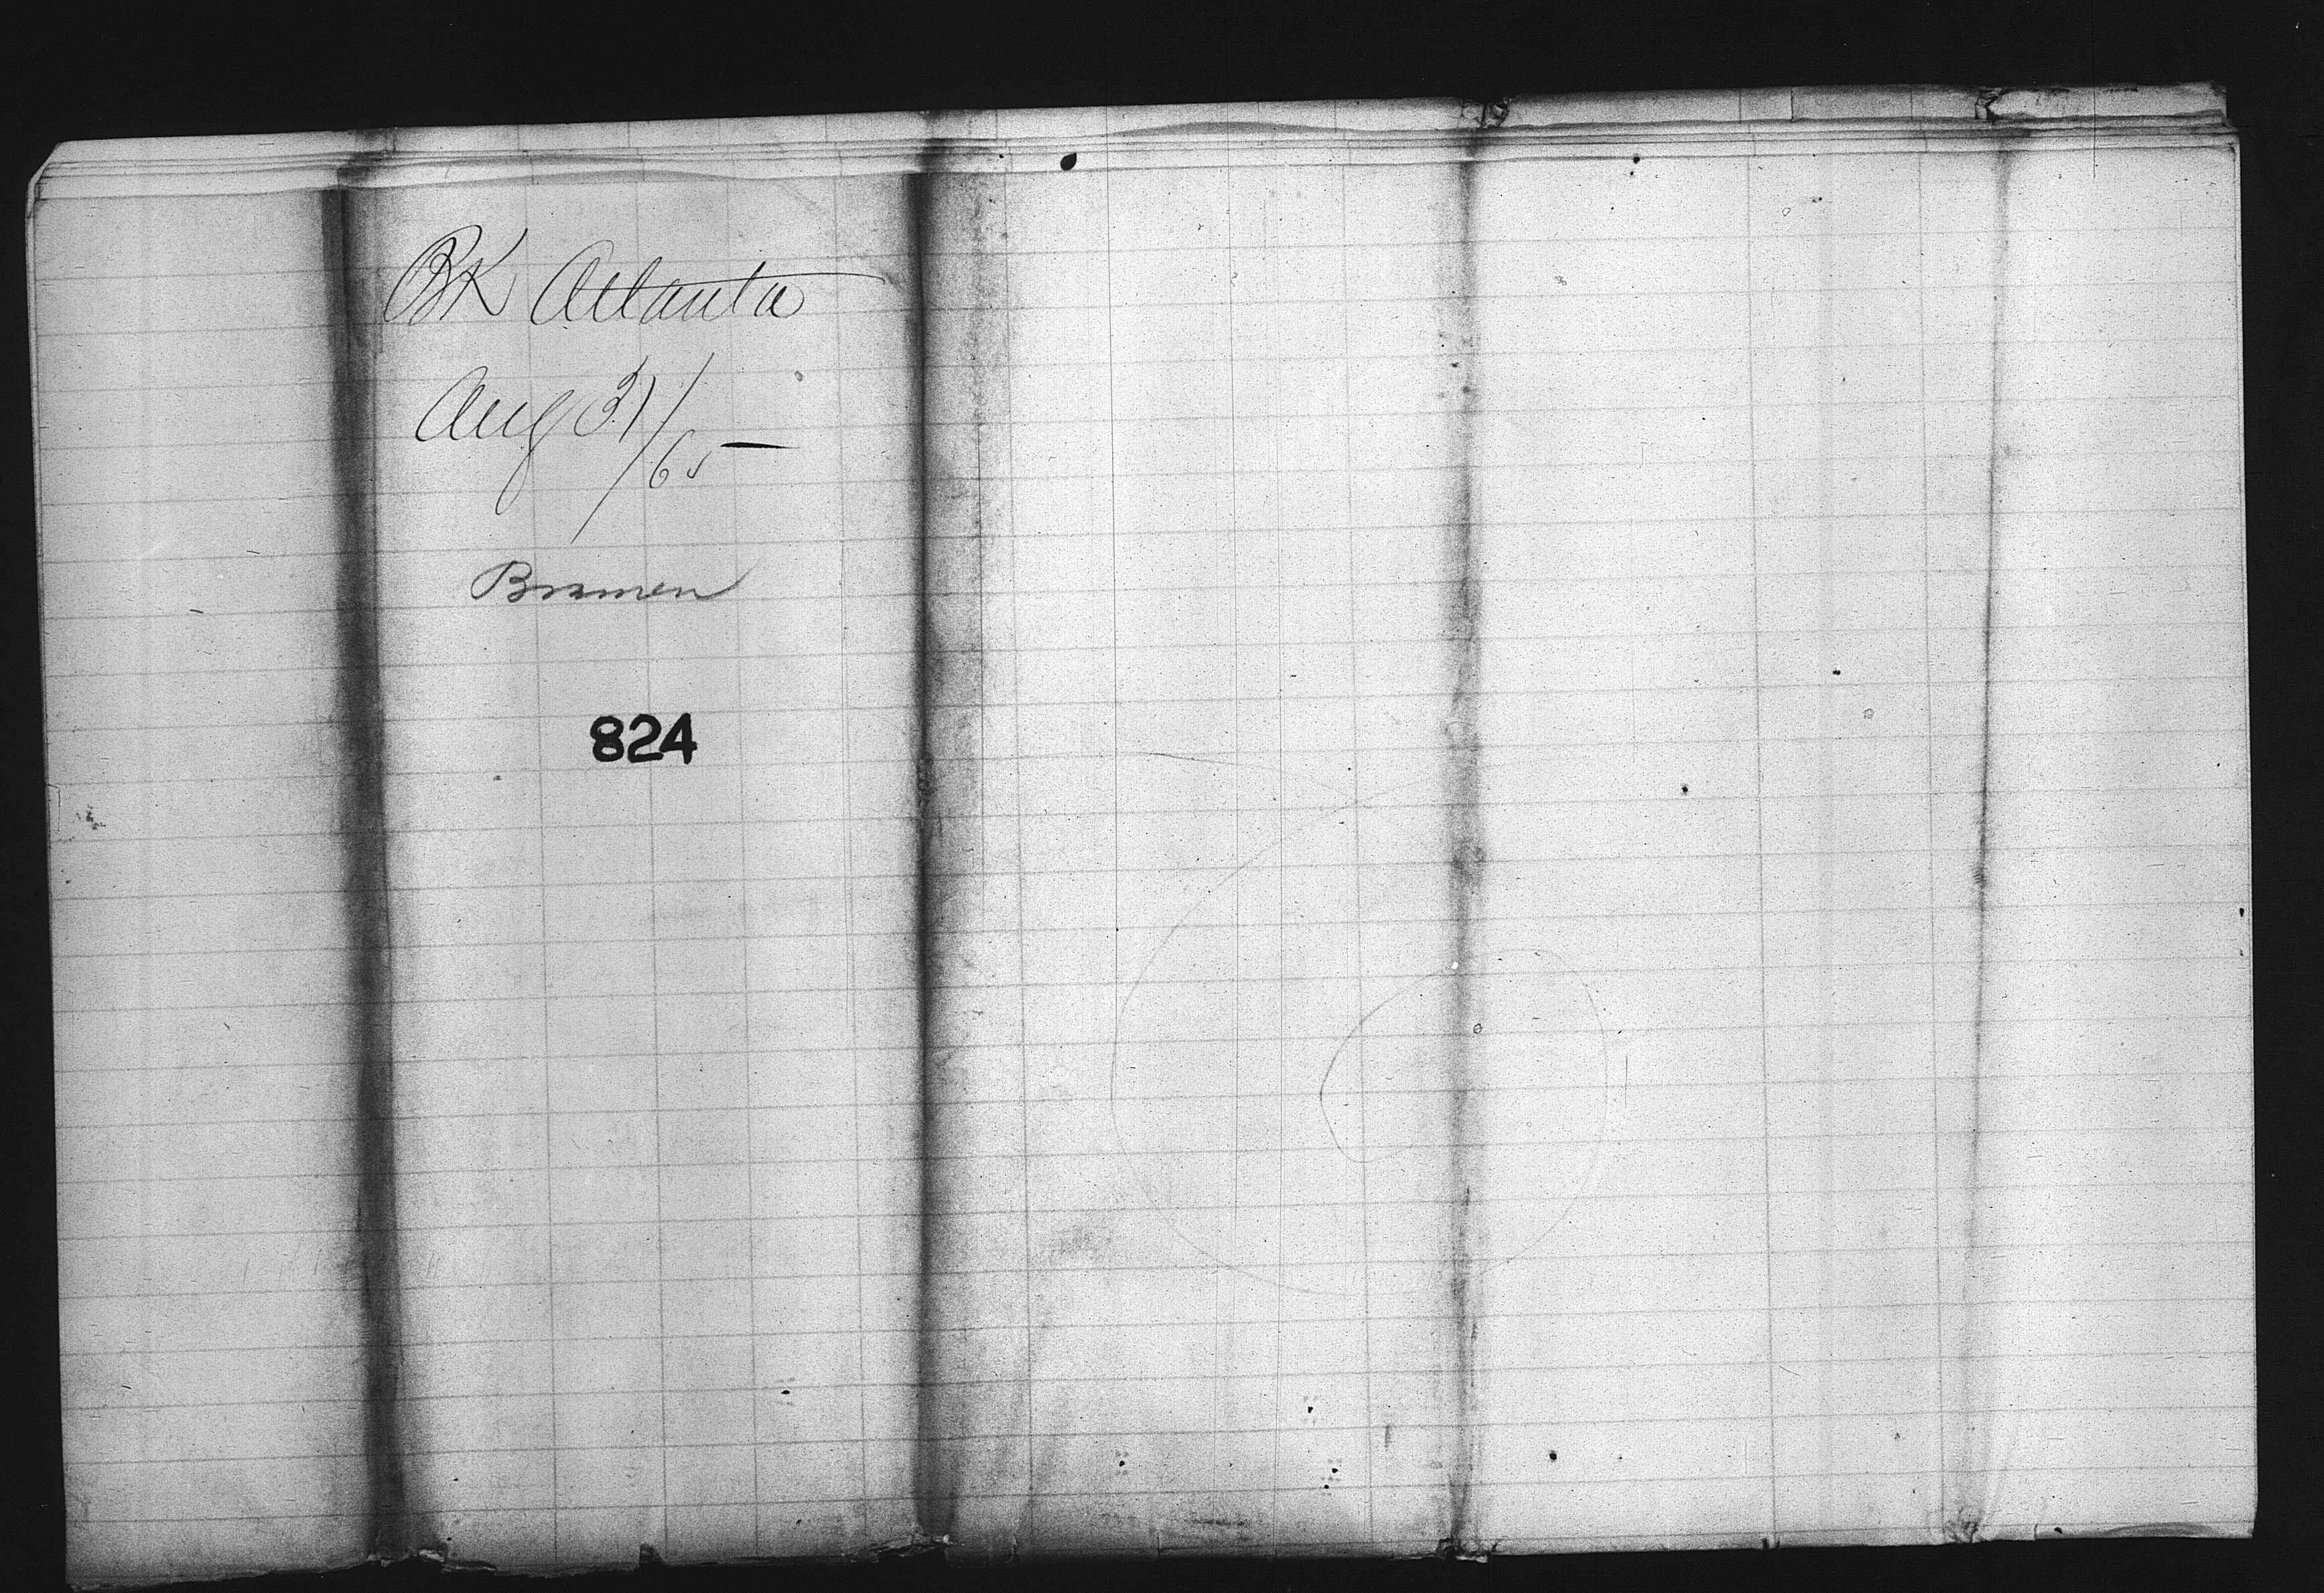 BK Atlanta
Aug 31/65
Bremen
824